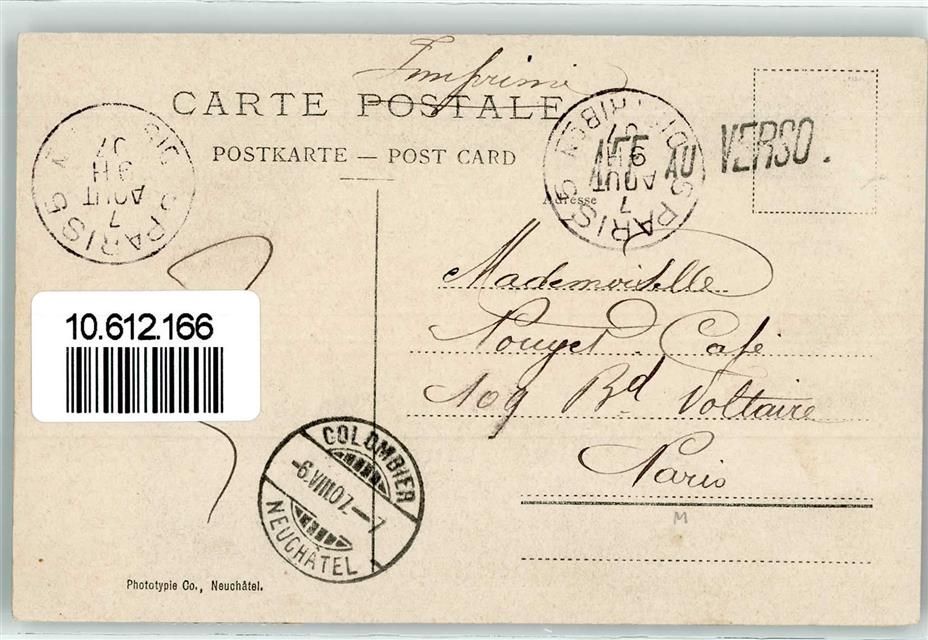 Imprimé
CARTE POSTALE
POSTKARTE — POST CARD
AFF. AU VERSO.
PARIS 5
7
AOUT
9H
07
PARIS 5
7
AOUT
9H
07
Adresse
Mademoiselle
Pouget. Café
109 Bd Voltaire
Paris
10.612.166
COLOMBIER
-6.VIII.07.-7
NEUCHÂTEL
M
Phototypie Co., Neuchâtel.